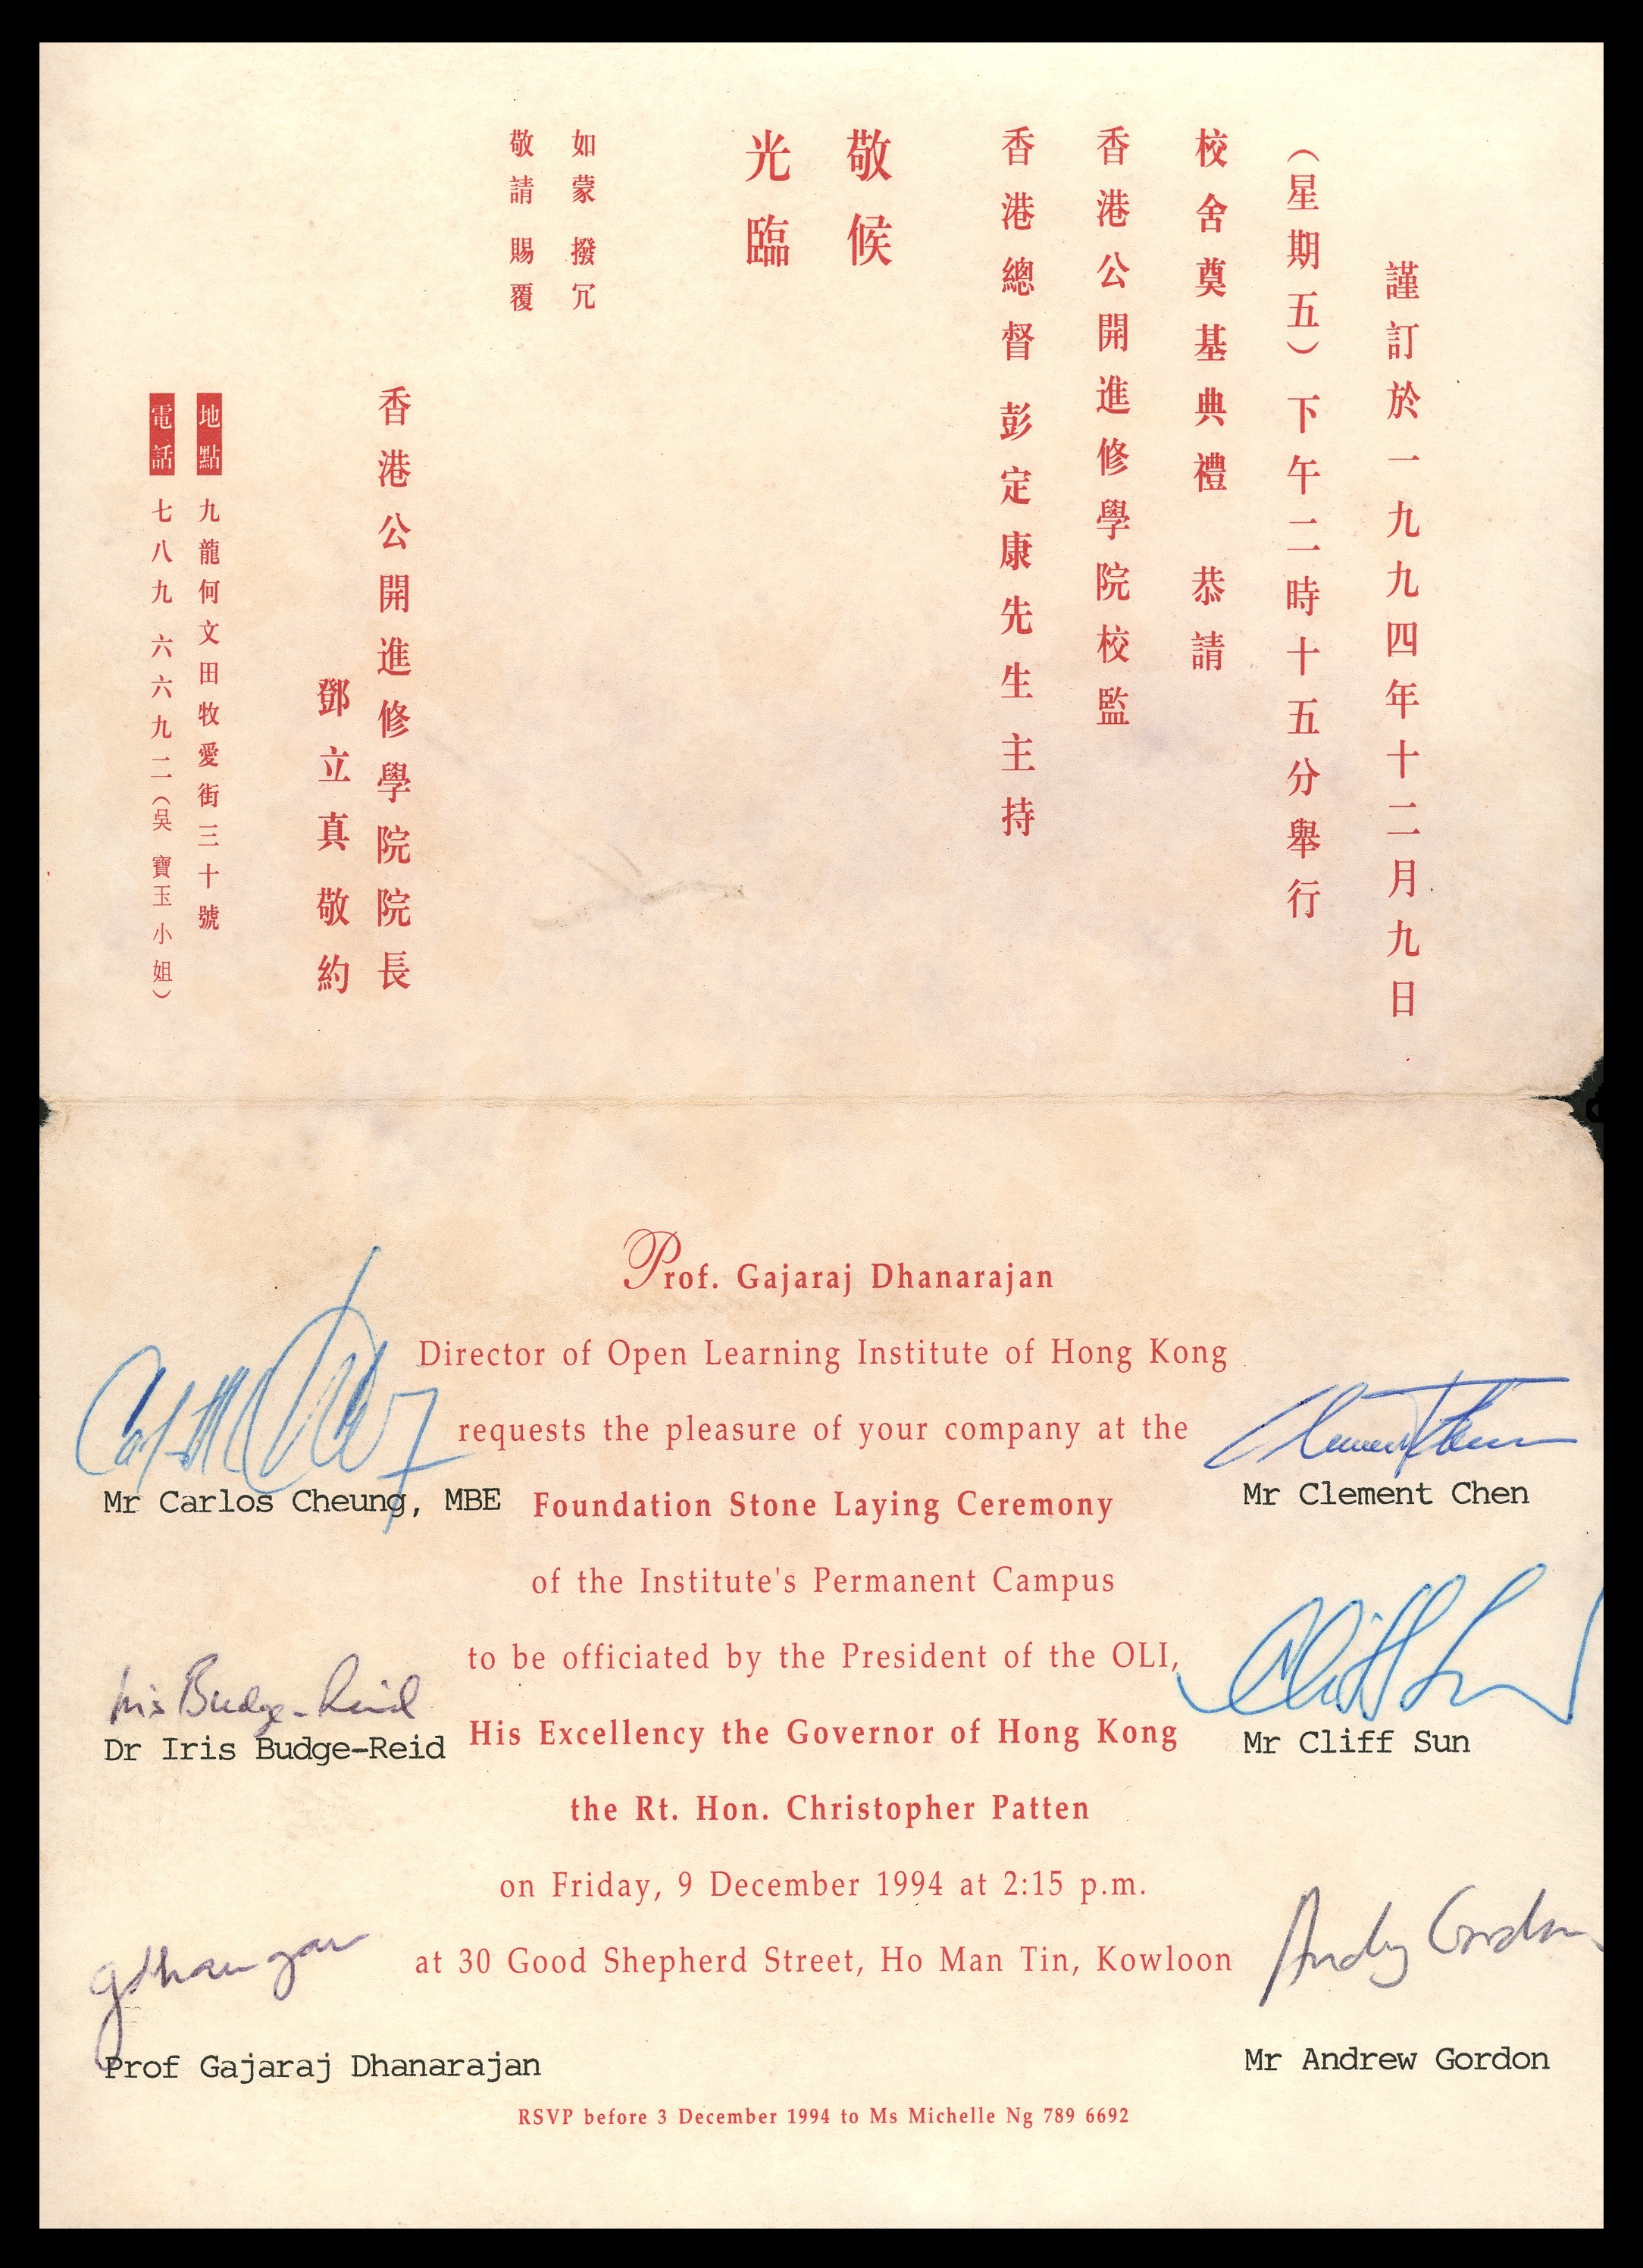 謹訂於一九九四年十二月九日
（星期五）下午二時十五分舉行
校舍奠基典禮 恭請
香港公開進修學院校監
香港總督 彭定康先生主持
敬候
光臨
如蒙 撥冗
敬請 賜覆
香港公開進修學院院長
鄧立真 敬約
地點 九龍何文田牧愛街三十號
電話 七八九 六六九二（吳寶玉小姐）
Prof. Gajaraj Dhanarajan
Director of Open Learning Institute of Hong Kong
requests the pleasure of your company at the
Foundation Stone Laying Ceremony
of the Institute's Permanent Campus
to be officiated by the President of the OLI,
His Excellency the Governor of Hong Kong
the Rt. Hon. Christopher Patten
on Friday, 9 December 1994 at 2:15 p.m.
at 30 Good Shepherd Street, Ho Man Tin, Kowloon
RSVP before 3 December 1994 to Ms Michelle Ng 789 6692
Mr Carlos Cheung, MBE
Iris Budge-Reid
Dr Iris Budge-Reid
Prof Gajaraj Dhanarajan
Clement Chen
Mr Clement Chen
Cliff Sun
Mr Cliff Sun
Andy Gordon
Mr Andrew Gordon